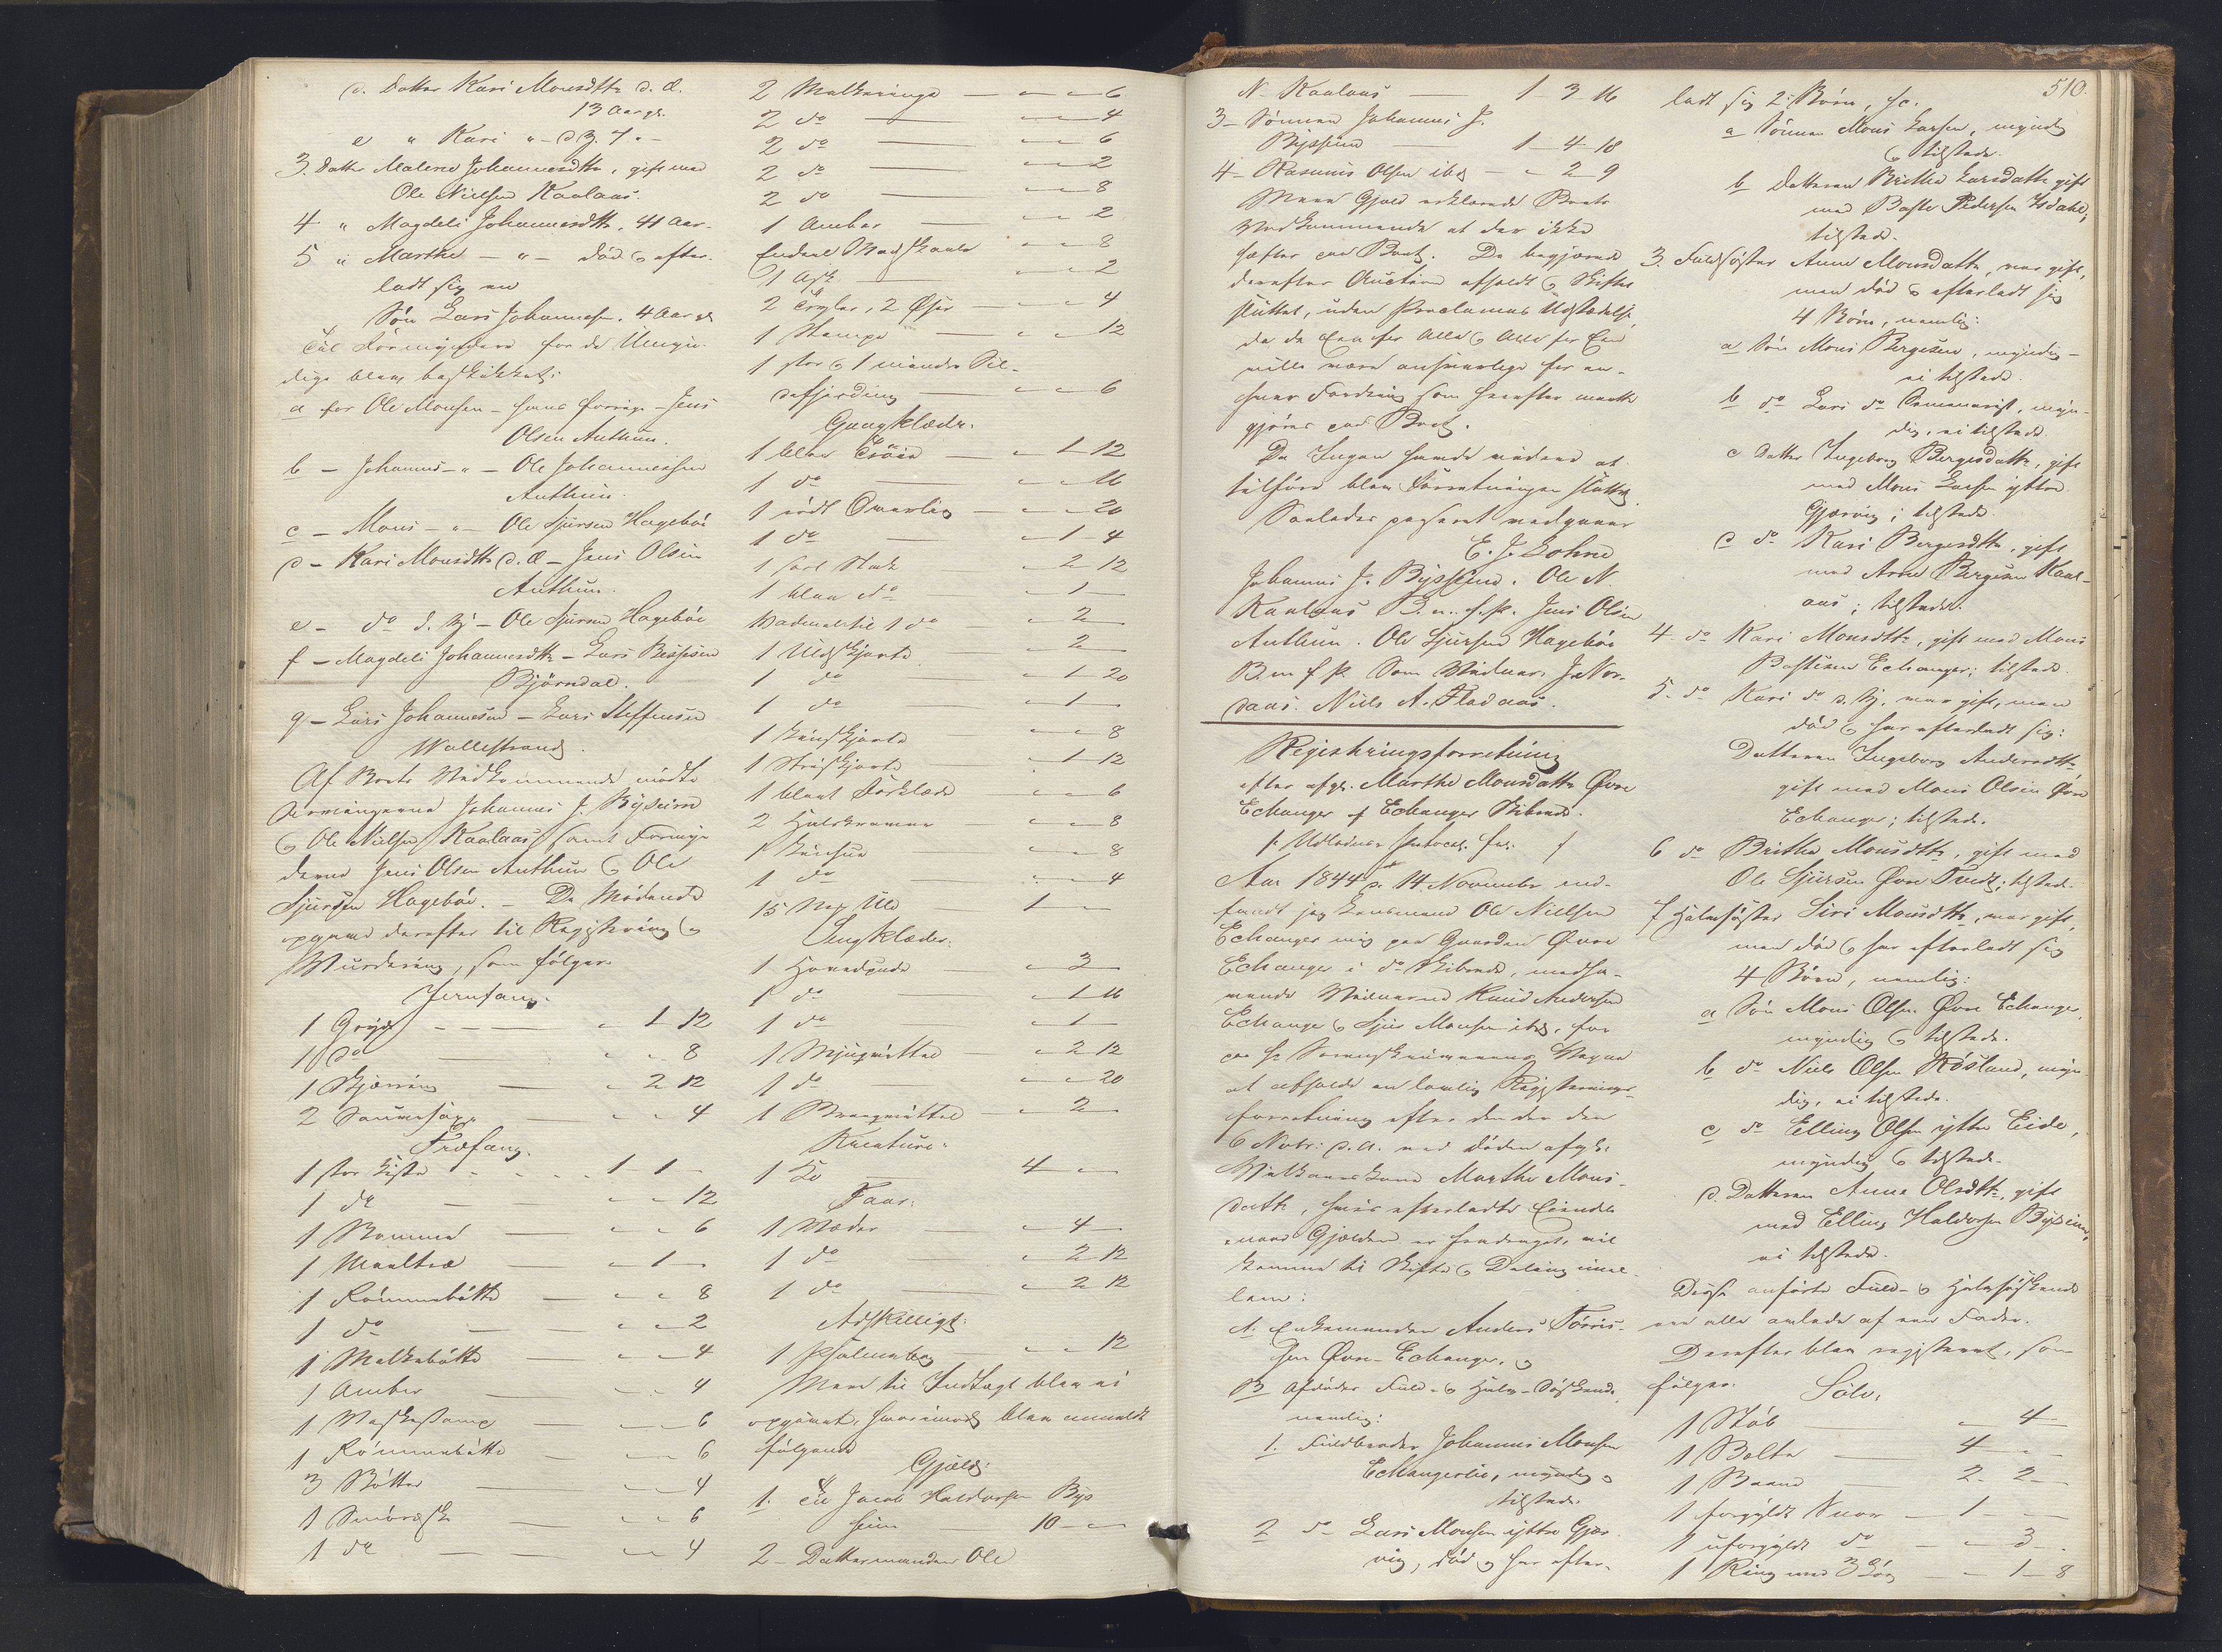 d. Datter Kari Monsdttr d. Æ.
13 Aar gl.
e " Kari " - d. y. 7 " -
3. Datter Malene Johannesdttr, gift med
Ole Nielsen Kaalaas.
4 " Magdeli Johannesdttr, 41 Aar.
5 " Marthe - " - død & efter-
ladt sig en
Søn Lars Johannesen, 4 Aar gl.
Til Formyndere for de Umyn-
dige blev beskikket:
a for Ole Monsen - hans Jens
Olsen Anthun.
b - Johannes - " - Ole Johannessen
Anthun.
c - Mons - " - Ole Sjursen Hagebøe
d - Kari Monsdttr d. Æ - Jens Olsen
Anthun.
e - do d. y - Ole Sjursen Hagebøe
f - Magdeli Johannesdttr - Lars
Bjørndal.
g - Lars Johannesen - Lars Steffensen
Wallestrand.
Af Boets Vedkommende mødte
Johannes J. Bysheim
& Ole Nielsen Kaalaas samt Formyn-
derne Jens Olsen Anthun & Ole
Sjursen Hagebøe. - De Mødende
derefter til Registrering &
Vurdering, som følger.
Jernfang.
1 Gryde - " 1 12
1 do - " " 8
1 - " 2 12
2 - " " 4
Træfang.
1 stor Kiste - 1 1 "
1 do - " " 12
1 Bomme - " " 6
1 - " 1 "
1 Rømmebøtte - " " 8
1 do - " " 2
1 Melkebøtte - " " 4
1 Amber - " " 4
1 Vaskestamp - " " 6
1 Rømmebøtte - " " 6
3 Bøtter - " " 4
1 Smøræske - " " 6
1 do - " " 4
2 Melkeringe - " " 6
2 do - " " 4
2 do - " " 6
2 do - " " 2
2 do - " " 8
1 Ambar - " " 2
Endeel - " " 8
1 Ask - " " 2
2 , 2 Øser - " " 4
1 Stampe - " " 12
1 stor & 1 mindre Sil-
defjerding - " " 6
Gangklæder.
1 blaa Trøie - " 1 12
1 do - " " 16
1 rødt - " " 20
1 do - " 1 4
1 sort Stak - " 2 12
1 blaa do - " 1 "
Vadmel til 1 do - " 2 "
1 Uldskjorte - " 2 "
1 do - " 1 20
1 do - " 1 "
1 - " " 8
1 - " 1 12
1 blaat Forklæde - " " 6
2 - " " 8
1 - " " 8
1 do - " " 4
15 Uld - 1 " "
Sengklæder.
1 Hovedpude - " 3 "
1 do - " 1 16
1 do - " 1 "
1 - " 2 12
1 do - " " 20
1 - " 2 "
Kreature.
1 Ko - 4 " "
Faar.
1 Væder - " 4 "
1 do - " 2 12
1 do - " 2 12
Adskilligt.
1 Psalmebog - " " 12
Mere til Indtægt blev ei
opgivet, hvorimod blev anmeldt
følgende
Gjæld:
1. Til Jacob Haldorsen Bys-
heim - 10 " "
2 - Dattermanden Ole
510.
N. Kaalaas - 1 3 16
3 - Sønnen Johannes J.
Bysheim - 1 4 18
4 - Rasmus Olsen ibd - " 2 9
Meere Gjæld erklærede Boets
Vedkommende at der ikke
hæfter paa Boet. De begjærede
derefter Auction afholdt & Skiftet
sluttet, uden Proclamas Udstædelse,
da de Een for Alle & Alle for Een
ville være ansvarlige for en-
hver Fordring som herefter maatte
gjøres paa Boet.
Da Ingen havde videre at
tilføre blev Forretningen sluttet.
Saaledes passeret
E. J. Gohne
Johannes J. Bysheim. Ole N.
Kaalaas m. f. p. Jens Olsen
Anthun. Ole Sjursen Hagebøe
m. f. p. Som Vidner: J. Nor-
daas. Niels A. Fladaas.
Registreringsforretning
efter afgl. Marthe Monsdatter Øvre
Echanger af Echanger Skibrede.
Aar 1844 d. 14. November ind-
fandt jeg Lensmand Ole Nielsen
Echanger mig paa Gaarden Øvre
Echanger i do Skibrede, medha-
vende Vidnerne Knud Andersen
Echanger & Sjur Monsen ibd, for
paa Hr Sorenskriverens Vegne
at afholde en lovlig Registrerings-
forretning efter den der den
6 Novbr: d. A. ved døden afgl.
Marthe Mons-
datter, hvis efterladte Eiendele
naar Gjælden er fradraget, vil
komme til Skifte & Deling imel-
lem:
A. Enkemanden Anders Torris-
sen Øvre Echanger, &
B Afdødes Fuld- & Halv-Søskende,
nemlig:
1. Fuldbroder Johannes Monsen
Echangerlie, myndig &
tilstede.
2 do Lars Monsen yttre Gjær-
vig, død & har efter-
ladt sig 2 Børn, sc.
a Sønnen Mons Larsen, myndig
& tilstede.
b Datteren Brithe Larsdatter gift
med Baste Pedersen Isdahl,
tilstede.
3. Fuldsøster Anne Monsdatter, var gift,
men død & efterladt sig
4 Børn, nemlig:
a Søn Mons Bergesen, myndig -
ei tilstede.
b do Lars do , myn-
dig, ei tilstede.
c Datter Ingeborg Bergesdatter, gift
med Mons Larsen yttre
Gjærvig; tilstede.
d do Kari Bergesdttr, gift
med Arne Bergesen Kaal-
aas; tilstede.
4. do Kari Monsdttr, gift med Mons
Bastesen Echanger; tilstede.
5. do Kari do d. y. var gift, men
død & har efterladt sig:
Datteren Ingeborg Andersdttr
gift med Mons Olsen Øvre
Echanger; tilstede.
6 do Brithe Monsdttr, gift med
Ole Sjursen Øvre Tvedt; tilstede.
7 Halvsøster Siri Monsdttr, var gift,
men død & har efterladt sig
4 Børn, nemlig:
a Søn Mons Olsen Øvre Echanger,
myndig & tilstede.
b do Niels Olsen Røsland, myn-
dig, ei tilstede.
c do Elling Olsen yttre Eide,
myndig & tilstede.
d. Datteren Anna Olsdttr, gift
med Elling Haldorsen Bysheim,
ei tilstede.
Disse anførte Fuld- & Halvsøskende
ere alle avlede af een Fader.
Derefter blev registreret, som
følger. Sølv.
1 Stób - " 4 "
1 Belte - 4 " "
1 - 2 2 "
1 forgyldt - 1 " "
1 uforgyldt do - " 3 "
1 Ring med 3 Løv - " 1 8